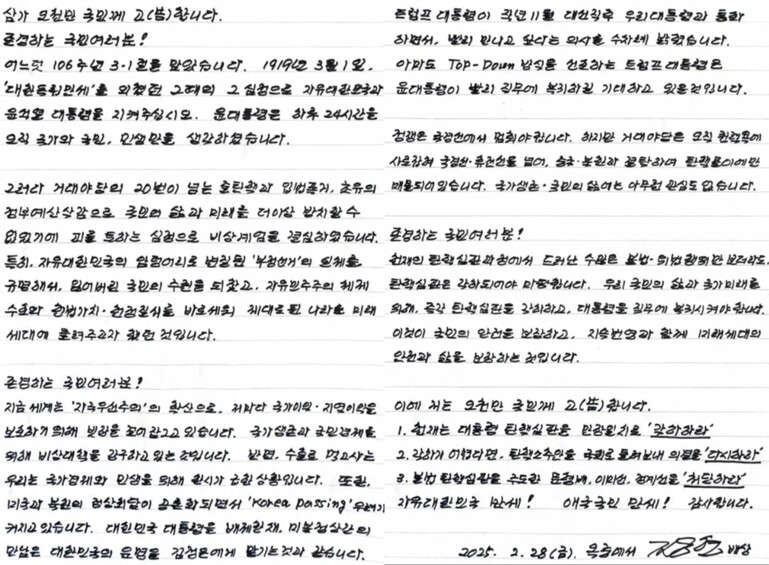 삼가 오천만 국민께 고(告)합니다.
존경하는 국민여러분!
어느덧 106주년 3·1절을 맞았습니다. 1919년 3월 1일,
'대한독립만세'를 외쳤던 그때의 그 심정으로 자유대한민국과
윤석열 대통령을 지켜주십시오. 윤대통령은 하루 24시간을
오직 국가와 국민, 민생만을 생각하셨습니다.
그러다 거대야당의 20번이 넘는 줄탄핵과 입법폭거, 초유의
정부예산삭감으로 국민의 삶과 미래를 더이상 방치할 수
없었기에 피를 토하는 심정으로 비상계엄을 결심하였습니다.
특히, 자유대한민국의 암덩어리로 변질된 '부정선거'의 실체를
규명해서, 잃어버린 국민의 주권을 되찾고, 자유민주주의 체제
수호와 헌법가치·헌정질서를 바로세워 제대로된 나라를 미래
세대에 물려주고자 했던 것입니다.
존경하는 국민여러분!
지금 세계는 '자국우선주의'의 확산으로, 저마다 국가이익·지역이익을
보호하기 위해 빗장을 걸어 잠그고 있습니다. 국가생존과 국민경제를
위해 비상대책을 강구하고 있는 것입니다. 반면, 수출로 먹고사는
우리는 국가경제와 민생을 위해 한시가 급한 상황입니다. 또한,
미국과 북한의 정상회담이 공론화되면서 'Korea passing' 우려가
커지고 있습니다. 대한민국 대통령을 배제한채, 미북정상간의
만남은 대한민국의 운명을 김정은에게 맡기는것과 같습니다.
트럼프 대통령이 작년 11월 대선직후 우리대통령과 통화
하면서, 빨리 만나고 싶다는 의사를 수차례 밝혔습니다.
아마도 TOP-Down 방식을 선호하는 트럼프 대통령은
윤대통령이 빨리 직무에 복귀하길 기대하고 있을것입니다.
정쟁은 국경선에서 멈춰야 합니다. 하지만 거대야당은 오직 권력욕에
사로잡혀 국경선·휴전선을 넘어, 중국·북한과 결탁하여 탄핵몰이에만
매몰되어있습니다. 국가생존·국민의 삶에는 아무런 관심도 없습니다.
존경하는 국민여러분!
헌재의 탄핵심판과정에서 드러난 수많은 불법·위법행위만 보더라도,
탄핵심판은 각하되어야 마땅합니다. 우리 국민의 삶과 국가미래를
위해, 즉각 탄핵심판을 각하하고, 대통령을 직무에 복귀시켜야 합니다.
이것이 국민의 안전을 보장하고, 지속번영과 함께 미래세대의
안전과 삶을 보장하는 것입니다.
이에 저는 오천만 국민께 고(告)합니다.
1. 헌재는 대통령 탄핵심판을 만장일치로 '각하하라'
2. 각하가 어렵다면, 탄핵소추안을 국회로 돌려보내 의결을 '다시하라'
3. 불법 탄핵심판을 주도한 문형배, 이미선, 정계선을 '처단하라'
자유대한민국 만세! 애국국민 만세! 감사합니다.
2025. 2. 28(금). 옥중에서 김용현 배상